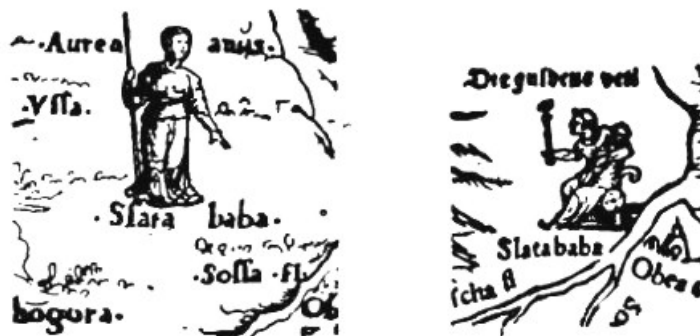 ·Aurea anus·
·Vſſa.
·Slata baba·
·Soſſa·fl.
hogora·
Ob
Die guldene vetl
Slatababa
ſcha fl
Obea